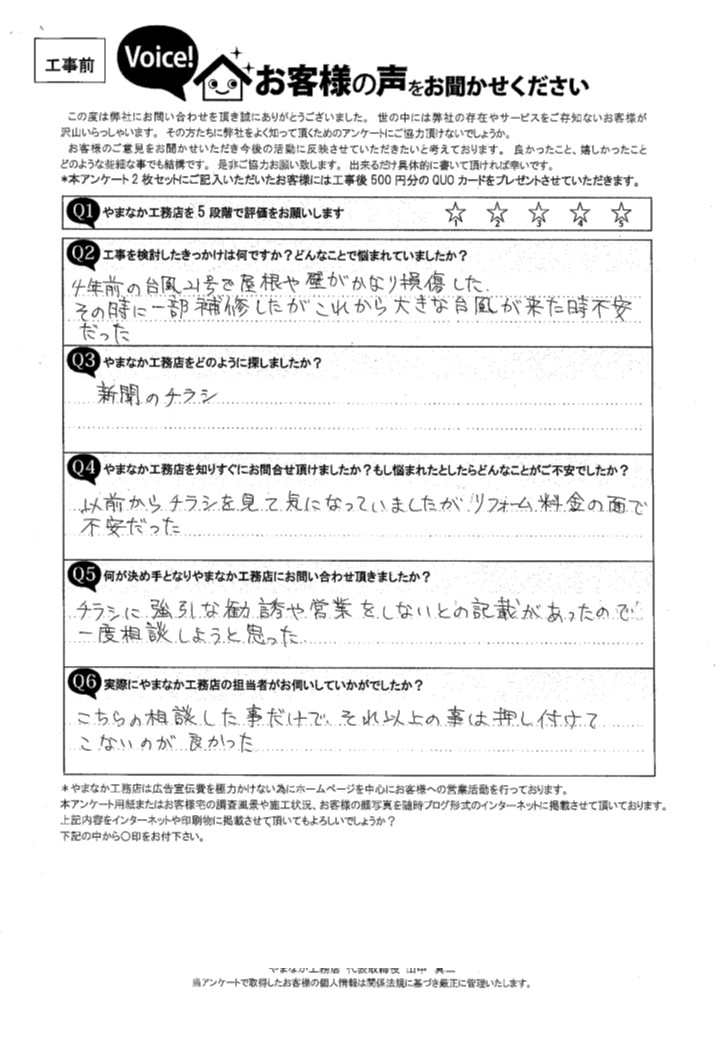 工事前
Voice!
お客様の声をお聞かせください
この度は弊社にお問い合わせを頂き誠にありがとうございました。世の中には弊社の存在やサービスをご存知ないお客様が
沢山いらっしゃいます。その方たちに弊社をよく知って頂くためのアンケートにご協力頂けないでしょうか。
お客様のご意見をお聞かせいただき今後の活動に反映させていただきたいと考えております。良かったこと、嬉しかったこと
どのような些細な事でも結構です。是非ご協力お願い致します。出来るだけ具体的に書いて頂ければ幸いです。
*本アンケート2枚セットにご記入いただいたお客様には工事後500円分のQUOカードをプレゼントさせていただきます。
Q1 やまなか工務店を5段階で評価をお願いします
☆1 ☆2 ☆3 ☆4 ☆5
Q2 工事を検討したきっかけは何ですか?どんなことで悩まれていましたか?
4年前の台風21号で屋根や壁がかなり損傷した.
その時に一部補修したがこれから大きな台風が来た時不安
だった
Q3 やまなか工務店をどのように探しましたか?
新聞のチラシ
Q4 やまなか工務店を知りすぐにお問合せ頂けましたか?もし悩まれたとしたらどんなことがご不安でしたか?
以前からチラシを見て気になっていましたがリフォーム料金の面で
不安だった
Q5 何が決め手となりやまなか工務店にお問い合わせ頂きましたか?
チラシに強引な勧誘や営業をしないとの記載があったので
一度相談しようと思った
Q6 実際にやまなか工務店の担当者がお伺いしていかがでしたか?
こちらの相談した事だけで、それ以上の事は押し付けて
こないのが良かった
*やまなか工務店は広告宣伝費を極力かけない為にホームページを中心にお客様への営業活動を行っております。
本アンケート用紙またはお客様宅の調査風景や施工状況、お客様の顔写真を随時ブログ形式のインターネットに掲載させて頂いております。
上記内容をインターネットや印刷物に掲載させて頂いてもよろしいでしょうか?
下記の中から〇印をお付下さい。
やまなか工務店 代表取締役 山中
当アンケートで取得したお客様の個人情報は関係法規に基づき厳正に管理いたします。